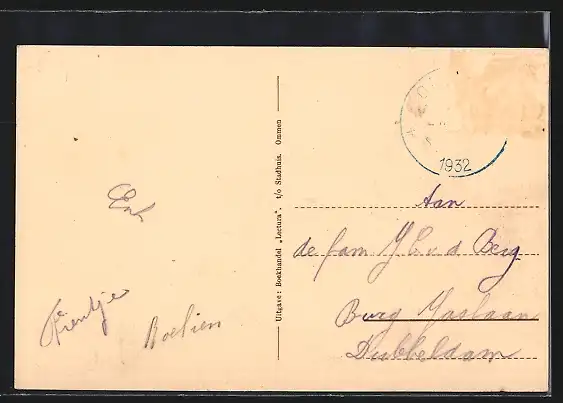 1932
Aan
de fam. J. C. v. d. Berg
Burg Jaslaan
Dubbeldam
Uitgave: Boekhandel „Lectura", t/o Stadhuis, Ommen
Roelien